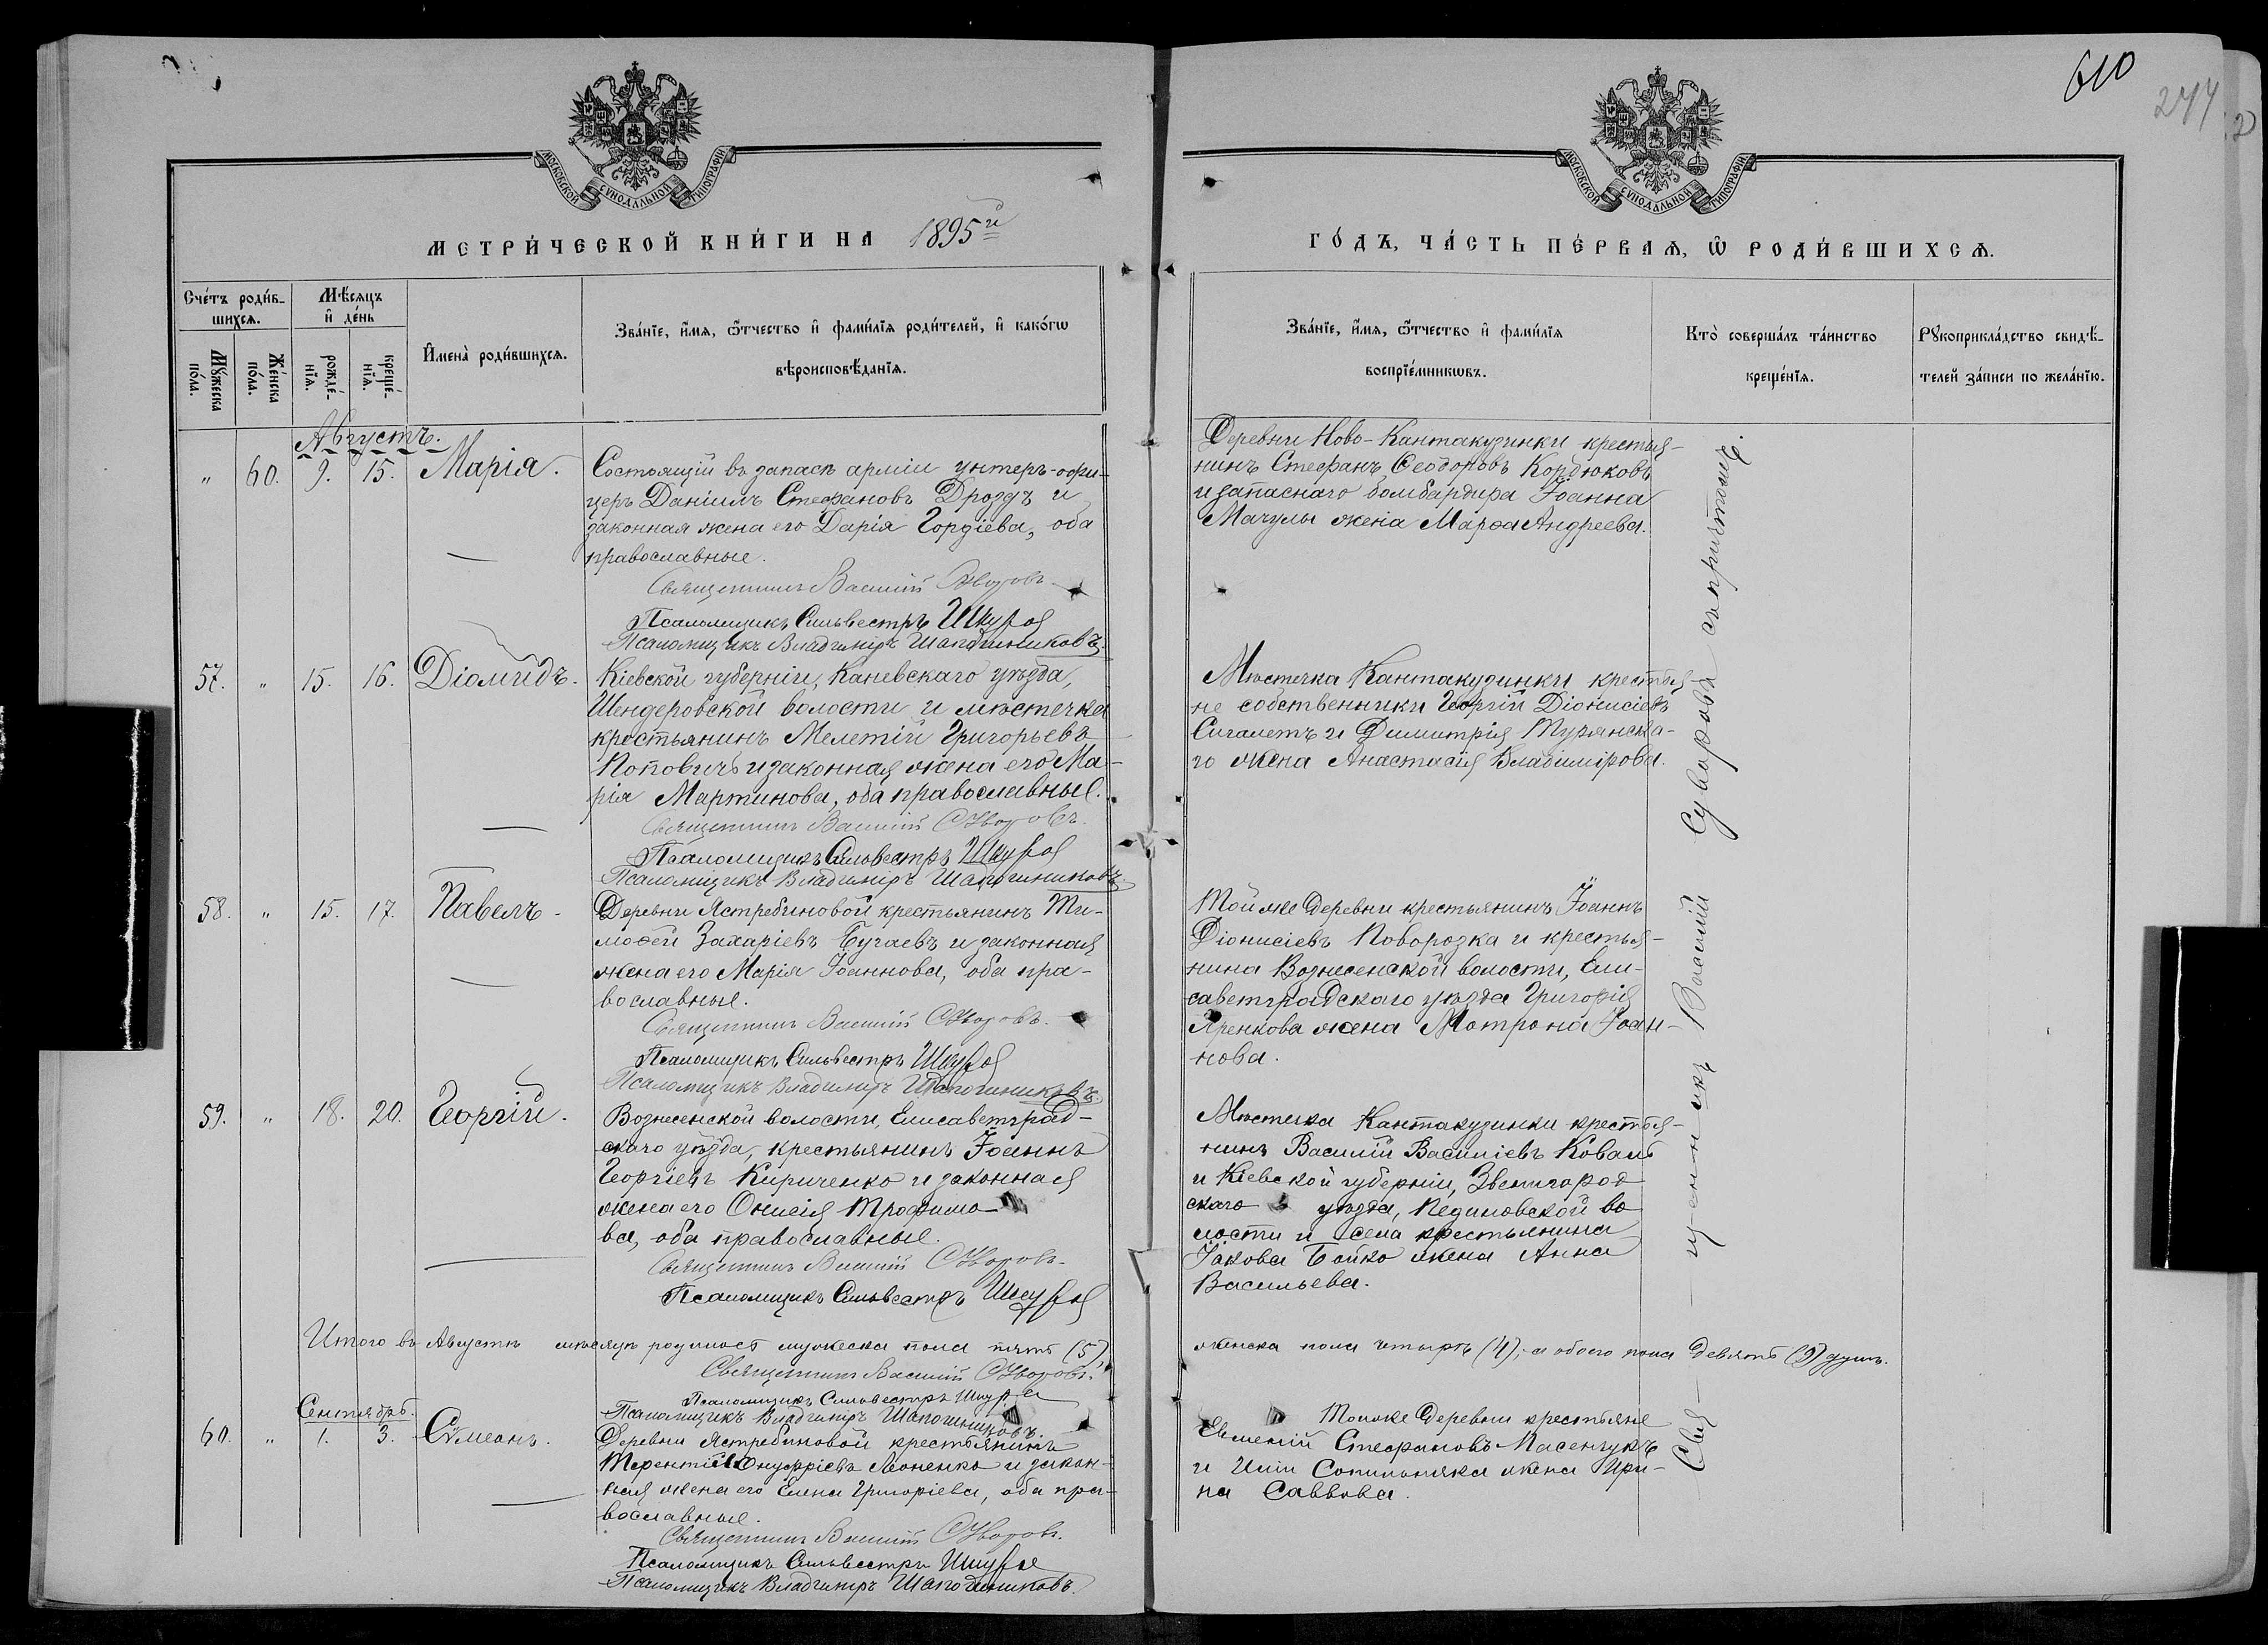 610
244
МОСКОВСКОЙ СѴНОДАЛЬНОЙ ТИПОГРАФІИ
МОСКОВСКОЙ СѴНОДАЛЬНОЙ ТИПОГРАФІИ
МЕТРИ́ЧЕСКОЙ КНИ́ГИ НА 1895й
ГО́ДЪ, ЧА́СТЬ ПЕ́РВАѦ, Ѡ РОДИ́ВШИХСѦ.
Сче́тъ роди́в-
шихсѧ.
Мꙋ́жеска по́ла.
Же́нска по́ла.
Мѣ́сѧцъ
и҆ де́нь
рожде́-
нїѧ.
креще́-
нїѧ.
И҆мена̀ роди́вшихсѧ.
Зва́нїе, и҆́мѧ, ѻ҆́тчество и҆ фами́лїѧ роди́телей, и҆ како́гѡ
вѣроисповѣ́данїѧ.
Зва́нїе, и҆́мѧ, ѻ҆́тчество и҆ фами́лїѧ
воспрїе́мникѡвъ.
Кто̀ соверша́лъ та́инство
креще́нїѧ.
Рꙋкоприкла́дство свидѣ́-
телей за́писи по жела́нїю.
Августъ.
" 60. 9. 15. Марія.
Состоящій въ запасѣ арміи унтеръ-офи-
церъ Даніилъ Стефановъ Дроздъ и
законная жена его Дарія Гордіева, оба
православные.
Священникъ Василій Суворовъ
Псаломщикъ Сильвестръ Шкура
Псаломщикъ Владиміръ Шапошниковъ.
Деревни Ново-Кантакузинки крестья-
нинъ Стефанъ Ѳеодоровъ Кордюковъ
и запаснаго бомбардира Іоанна
Мачулы жена Марѳа Андреева.
57. " 15. 16. Діомидъ.
Кіевской губерніи, Каневскаго уѣзда,
Шендеровской волости и мѣстечка
крестьянинъ Мелетій Григорьевъ
Поповичъ и законная жена его Ма-
рія Мартинова, оба православные.
Священникъ Василій Суворовъ.
Псаломщикъ Сильвестръ Шкура
Псаломщикъ Владиміръ Шапошниковъ.
Мѣстечка Кантакузинки крестья-
не собственники Георгій Діонисіевъ
Сигалетъ и Димитрія Турянска-
го жена Анастасія Владимірова.
58. " 15. 17. Павелъ.
Деревни Ястребиновой крестьянинъ Ти-
моѳей Захаріевъ Бугаевъ и законная
жена его Марія Іоаннова, оба пра-
вославные.
Священникъ Василій Суворовъ.
Псаломщикъ Сильвестръ Шкура
Псаломщикъ Владиміръ Шапошниковъ
Той же деревни крестьянинъ Іоаннъ
Діонисіевъ Поворозка и крестья-
нина Вознесенской волости, Ели-
саветградскаго уѣзда Григорія
Яренкова жена Матрона Іоан-
нова.
59. " 18. 20. Георгій.
Вознесенской волости, Елисаветград-
скаго уѣзда, крестьянинъ Іоаннъ
Георгіевъ Кириченко и законная
жена его Онисія Трофимо-
ва, оба православные.
Священникъ Василій Суворовъ.
Псаломщикъ Сильвестръ Шкура
Мѣстечка Кантакузинки крестья-
нинъ Василій Василіевъ Коваль
и Кіевской губерніи, Звенигород
скаго уѣзда, Пединовской во
лости и села крестьянина
Іакова Бойко жена Анна
Васильева.
Итого въ Августѣ мѣсяцѣ родилось мужеска пола пять (5),
женска пола четыре (4), а обоего пола девять (9) душъ.
Священникъ Василій Суворовъ.
Псаломщикъ Сильвестръ Шкура
Псаломщикъ Владиміръ Шапошниковъ.
Сентябрь.
60. " 1. 3. Сѵмеонъ.
Деревни Ястребиновой крестьянинъ
Терентій Онуфріевъ Леоненко и закон-
ная жена его Елена Григоріева, оба пра-
вославные.
Священникъ Василій Суворовъ.
Псаломщикъ Сильвестръ Шкура
Псаломщикъ Владиміръ Шапошниковъ.
Той же деревни крестьяне
Евменій Стефановъ Пасенчукъ
и Иліи Сопильняка жена Ири-
на Саввова.
Священникъ Василій Суворовъ съ причтомъ.